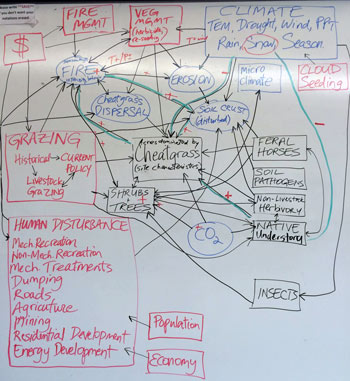 FIRE
MGMT
VEG
MGMT
(herbicide,
re-seeding)
CLIMATE
Tem, Drought, Wind, PPT
Rain, Snow, Season
$
FIRE
EROSION
Micro
Climate
CLOUD
Seeding
Cheatgrass
DISPERSAL
SOIL CRUST
(disturbed)
GRAZING
Historical
CURRENT
Policy
Livestock
Grazing
dominated by
Cheatgrass
(site characteristics)
FERAL
HORSES
SOIL
PATHOGENS
SHRUBS
TREES
Non-Livestock
Herbivory
NATIVE
Understory
CO2
HUMAN DISTURBANCE
Mech Recreation
Non-Mech Recreation
Mech Treatments
Dumping
Roads
Agriculture
Mining
Residential Development
Energy Development
INSECTS
Population
Economy